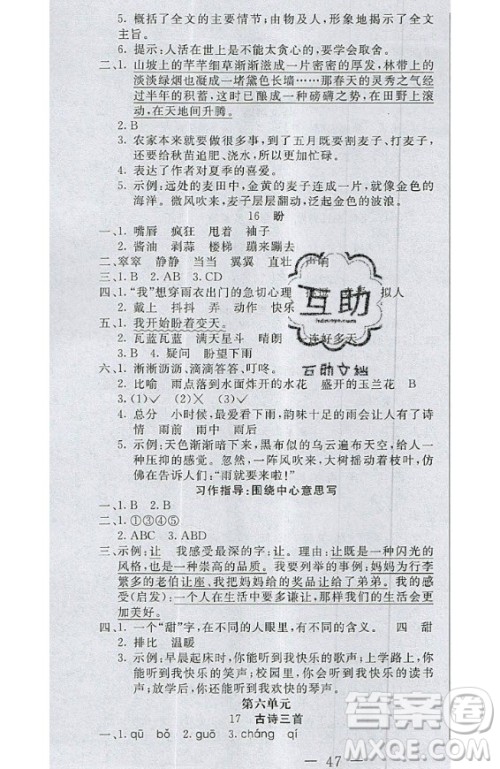 5. 概括了全文的主要情节;由物及人,形象地揭示了全文
主旨。
6. 提示:人活在世上是不能太贪心的,要学会取舍。
二、1. 山坡上的芊芊细草渐渐滋成一片密密的厚发,林带上的
淡淡绿烟也凝成一堵黛色长墙……那春天的灵秀之气
经过半年的积蓄,这时已酿成一种磅礴之势,在田野上滚
动,在天地间升腾。
2. B
3. 农家本来就要做很多事,到了五月既要割麦子、打麦子,
还要给秋苗追肥、浇水,所以更加忙碌。
4. 表达了作者对夏季的喜爱。
5. 示例:远处的麦田中,金黄的麦子连成一片,就像金色的
海洋。微风吹来,麦子层层翻动,发出唰唰的声响。
16 盼
一、1. 嘴唇 疯狂 甩着 袖子
2. 酱油 剥蒜 楼梯 踢来蹦去
二、窣窣 静静 当当 翼翼 直直
三、1. B 2. AB 3. CD
四、1. “我”想穿雨衣出门的急切心理 拟人
2. 戴上 抖抖 弄 动作 快乐
五、1. 我开始盼着变天。
2. 瓦蓝瓦蓝 满天星斗 晴朗 连好多天
3. B 4. 疑问 盼望
六、1. 淅淅沥沥,滴滴答答,叮咚。
2. 比喻 雨点落到水面炸开的水花 盛开的玉兰花 B
3. (1)✓ (2)✓
4. 总分 小时候,最甜的、韵味十足的雨会让人有了诗
情 雨前 雨中 雨后
5. 示例:天色渐渐暗下来,黑布似的乌云遍布天空,给人
一种压抑的感觉。忽然,一阵风吹来,大树摇曳着,仿
佛在告诉人们,“雨就要来啦!”
习作指导:围绕中心意思写
一、1. B 2. B
二、1. ①③④⑤
2. ABC 3. ABC
三、示例:让 我感受最深的字:让。理由:让既是一种闪光的
风格,也是一种崇高的品质。我要列举的事例:妈妈为行李
繁多的老伯让座、我把妈妈给的奖品让给了弟弟。我的感
受(启发):一个人在生活中要多谦让,我们的世界会变得
更加美好。
四、1. 一个“甜”字,在不同的人眼里,有不同的含义。 四 甜
2. 排比 温暖
3. 示例:早晨起床时,你能听到我快乐的歌声;上学路上,
你能听到我快乐的笑声;放学回家时,你能听到我快乐
的叫声。
第六单元
17 古诗三首
一、1. qū bǒ 2. guō 3. cháng qí
— 47 —
互助
互助文档
答案圈
MXQE.COM